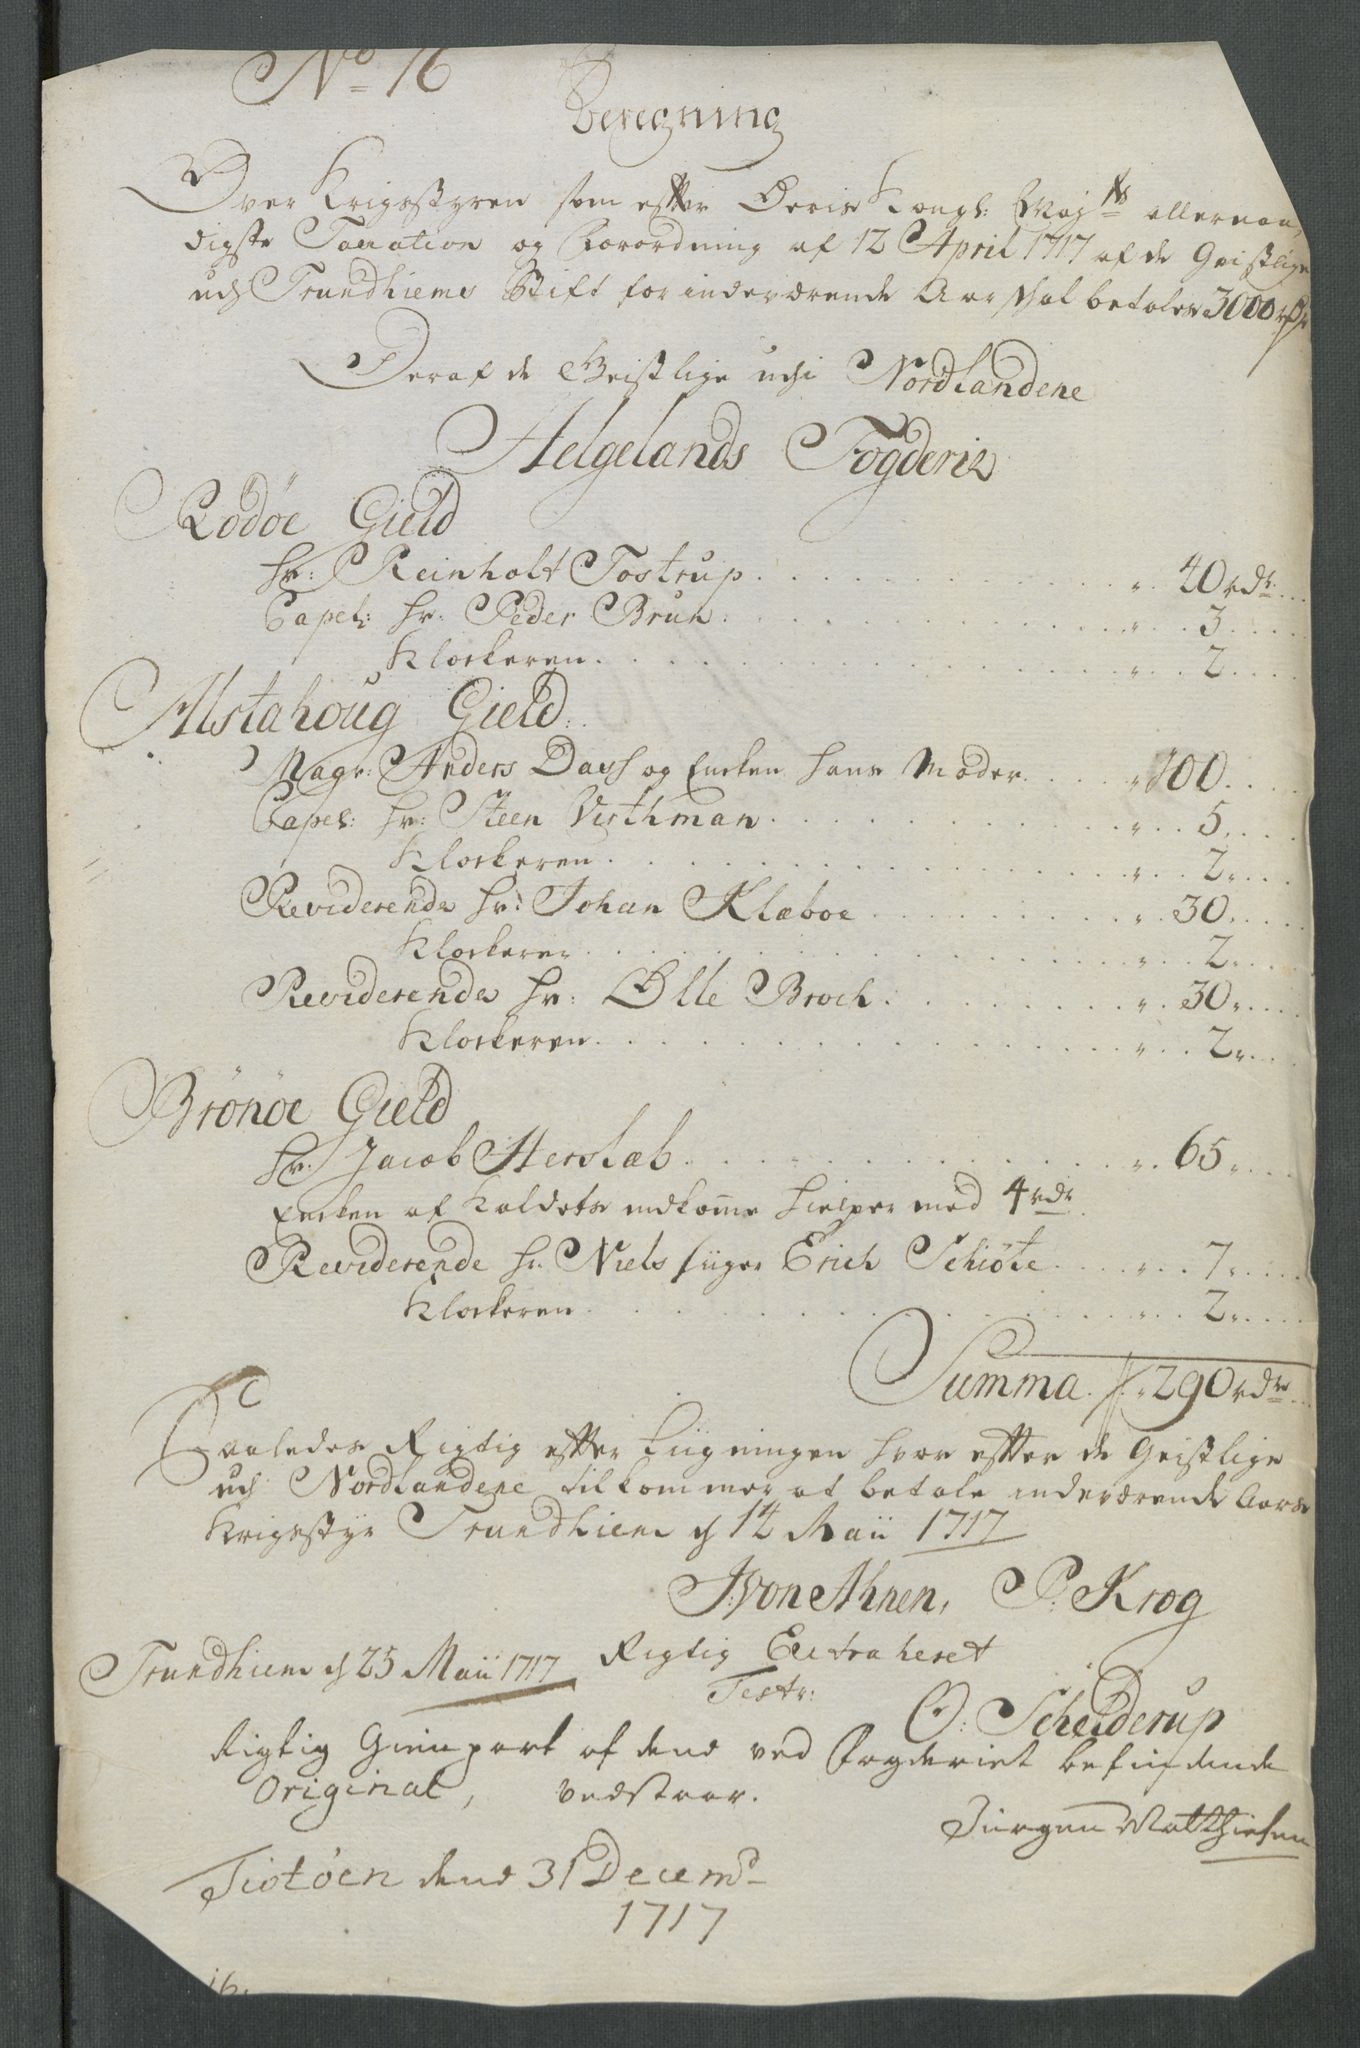 No 16
Beregning
Over Krigsstyren som efter Deris Kongl: Maj:ts allernaa,,
digste Taxation og Forordning af 12 April 1717 af de Geistlige
udj Trundhiems Stift for inderværende Aar skal betales 3000 rdr
Deraf de Geistlige udi Nordlandene
Helgelands Fogderie
Rodøe Gield
hr: Reinholt Tostrup . . . " . 40 rdr.
Capel: hr: Peder Bruh . . . " . 3
Klockeren . . . " . 2
Alstahoug Gield:
Magr: Anders Dass og Encken hans Moder . . . " 100
Capel: hr: Steen Wirthman . . . " . 5
Klockeren . . . " . 2
Reviderende hr: Johan Klæboe . . . " . 30
Klockeren . . . " . 2
Reviderende hr: Olle Broch . . . " . 30
Klockeren . . . " . 2
Brønøe Gield
hr: Jacob Herslæb . . . " . 65
Encken af Kaldets indkomme hielper med 4 rdr
Reviderende hr. Niels siiger Erich Schiøte . . . " . 7
Klockeren . . . " . 2
Summa . " 290 rdr
Saaledes Rigtig efter Liigningen hvor efter de Geistlige
udj Nordlandene tilkommer at betale inderværende Aars
Krigsstyr Trundhiem d 14 Maii 1717
J: von Ahnen, P: Krog
Trundhiem d 25 Maii 1717 Rigtig Extraheret
Test: O: Schelderup
Rigtig Gienpart af dend ved Fogderiet befindende
Original, vedstaar.
Jürgen Matthiesen
Tiøtøen dend 31 Decemb
1717
16.